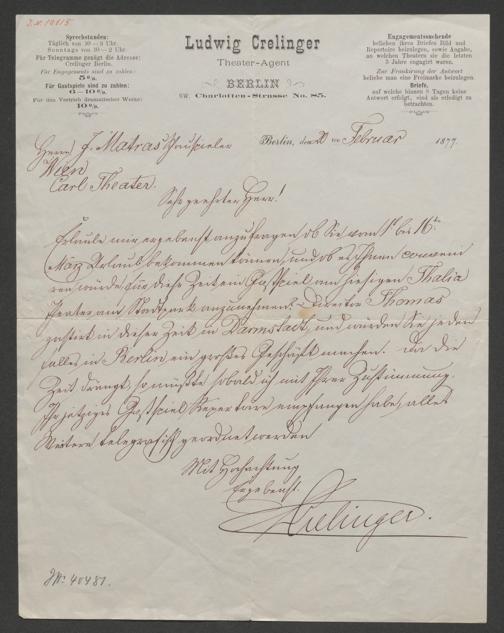 I. N. 10115
Sprechstunden:
Täglich von 10–3 Uhr.
Sonntags von 10–2 Uhr.
Für Telegramme genügt die Adresse:
Crelinger Berlin.
Für Engagements sind zu zahlen:
5%.
Für Gastspiele sind zu zahlen:
6–10%.
Für den Vertrieb dramatischer Werke:
10%.
Ludwig Crelinger
Theater-Agent
BERLIN
SW. Charlotten-Strasse No. 85.
Engagementsuchende
belieben ihren Briefen Bild und
Repertoire beizulegen, sowie Angabe,
an welchen Theatern sie die letzten
3 Jahre engagirt waren.
Zur Frankirung der Antwort
beliebe man eine Freimarke beizulegen
Briefe,
auf welche binnen 8 Tagen keine
Antwort erfolgt, sind als erledigt zu
betrachten.
Berlin, den 20 ten Februar 1877
Herrn J. Matras Schauspieler
Wien
Carl Theater.
Sehr geehrter Herr!
Erlaube mir ergebenst anzufragen ob Sie vom 1t bis 16ten
März Urlaub bekommen können, und ob es Ihnen conveni
ren würde, für diese Zeit ein Gastspiel am hiesigen Thalia
Theater am Stadtpark anzunehmen. Director Thomas
gastirt in dieser Zeit in Darmstadt, und würden Sie jeden
falls in Berlin ein großes Geschäft machen. Da die
Zeit drängt, so müßte sobald ich mit Ihrer Zustimmung
Ihr jetziges Gastspiel Repertoire empfangen habe, alles
Weitere telegrafisch geordnet werden
Mit Hochachtung
Ergebenst
Crelinger.
JN: 40481.